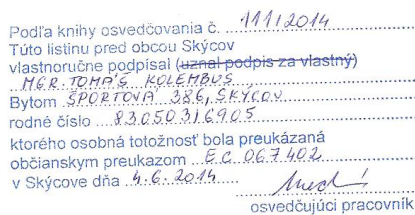 Podľa knihy osvedčovania č. 111/2014
Túto listinu pred obcou Skýcov
vlastnoručne podpísal (uznal podpis za vlastný)
MGR. TOMÁŠ KOLEMBUS
Bytom ŠPORTOVÁ 386, SKÝCOV
rodné číslo 8305036905
ktorého osobná totožnosť bola preukázaná
občianskym preukazom EC 067402
v Skýcove dňa 4.6.2014
osvedčujúci pracovník